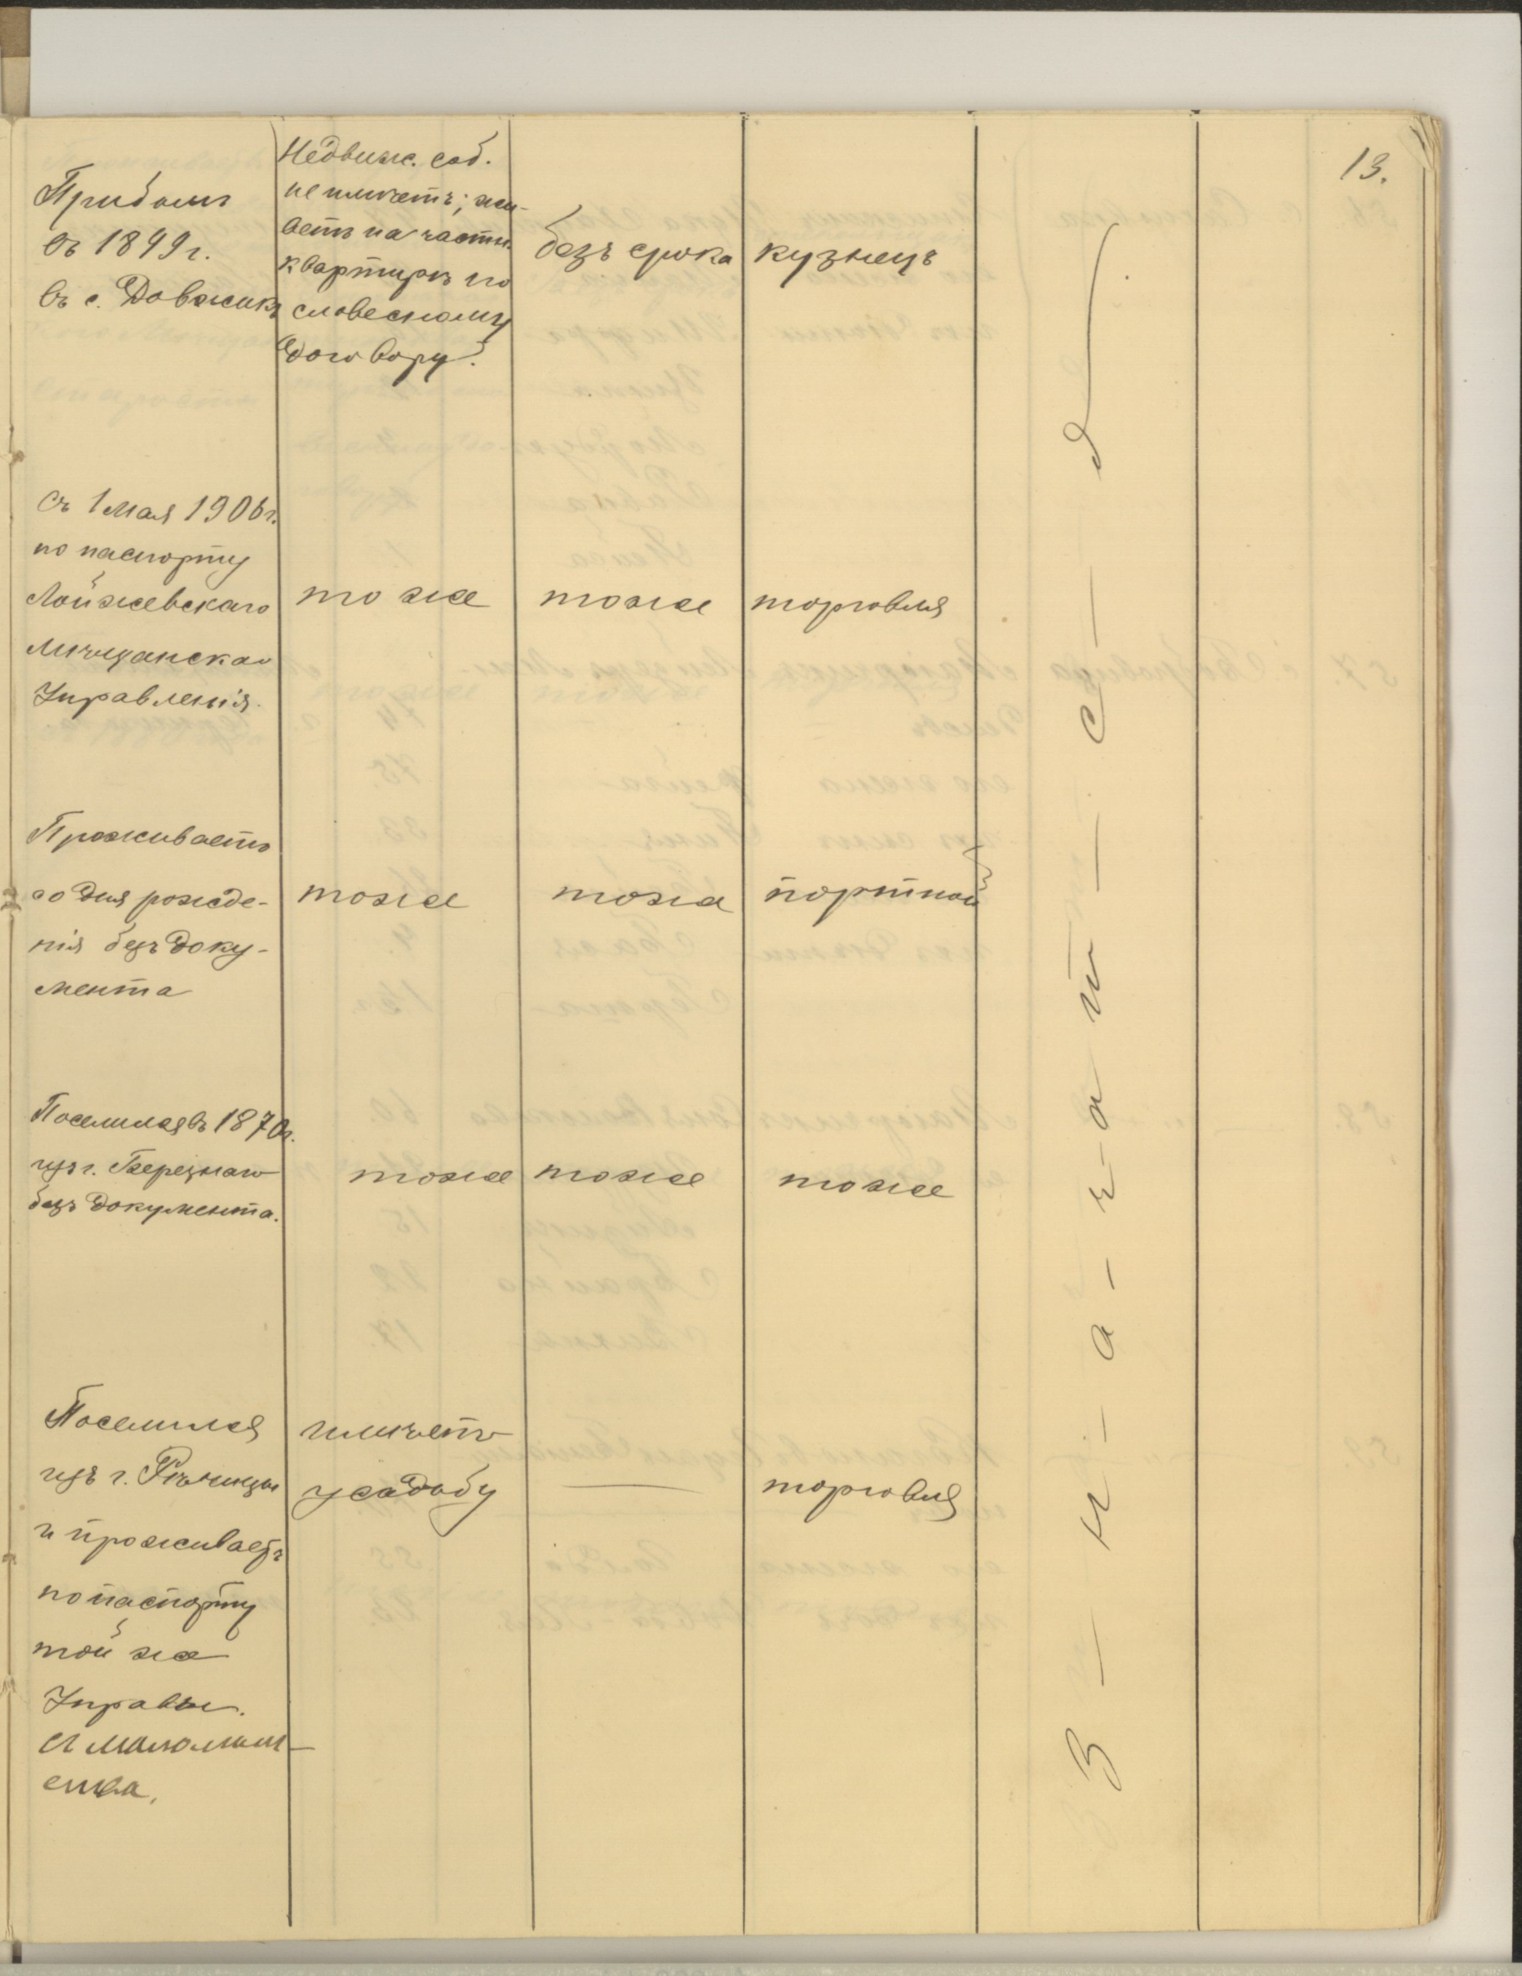 13.
Прибылъ
въ 1899 г.
въ с. Довжикъ
Недвиж. соб.
не имѣетъ; жи-
ветъ на частн.
квартирѣ по
словесному
договору.
безъ срока
кузнецъ
Съ 1 мая 1906 г.
по паспорту
Лойжевскаго
Мѣщанскаго
Управленія.
тоже
тоже
торговля
Проживаетъ
со дня рожде-
нія безъ доку-
мента
тоже
тоже
портной
Поселился въ 1870 г.
изъ г. Березнаго
безъ документа.
тоже
тоже
тоже
Поселился
изъ г. Рѣчицы
и проживаетъ
по паспорту
той же
Управы.
имѣетъ
усадьбу
—
торговля